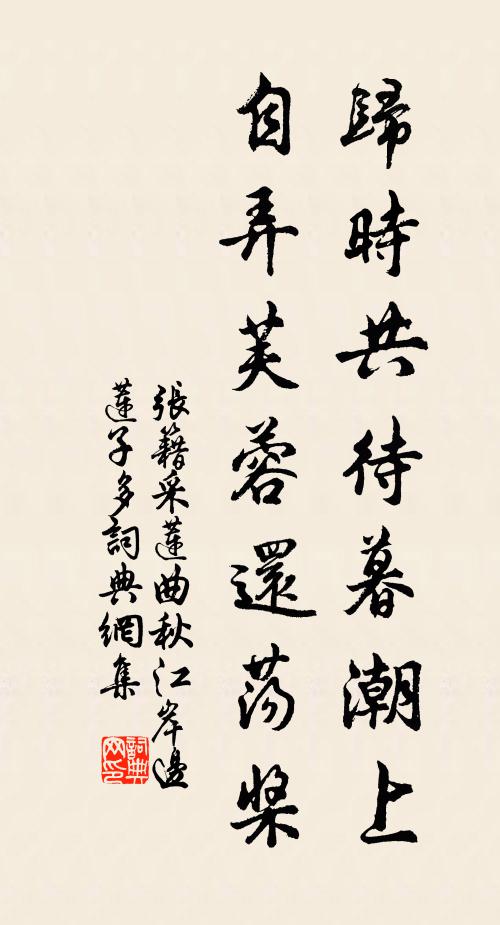 歸時共待暮潮上
自弄芙蓉還蕩槳
張籍采蓮曲秋江岸邊
蓮子多詞典網集
詞典
网印